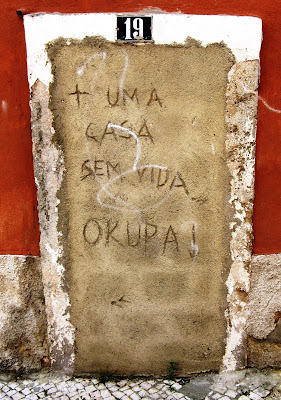 19
+ UMA
CASA
SEM VIDA
OKUPA!